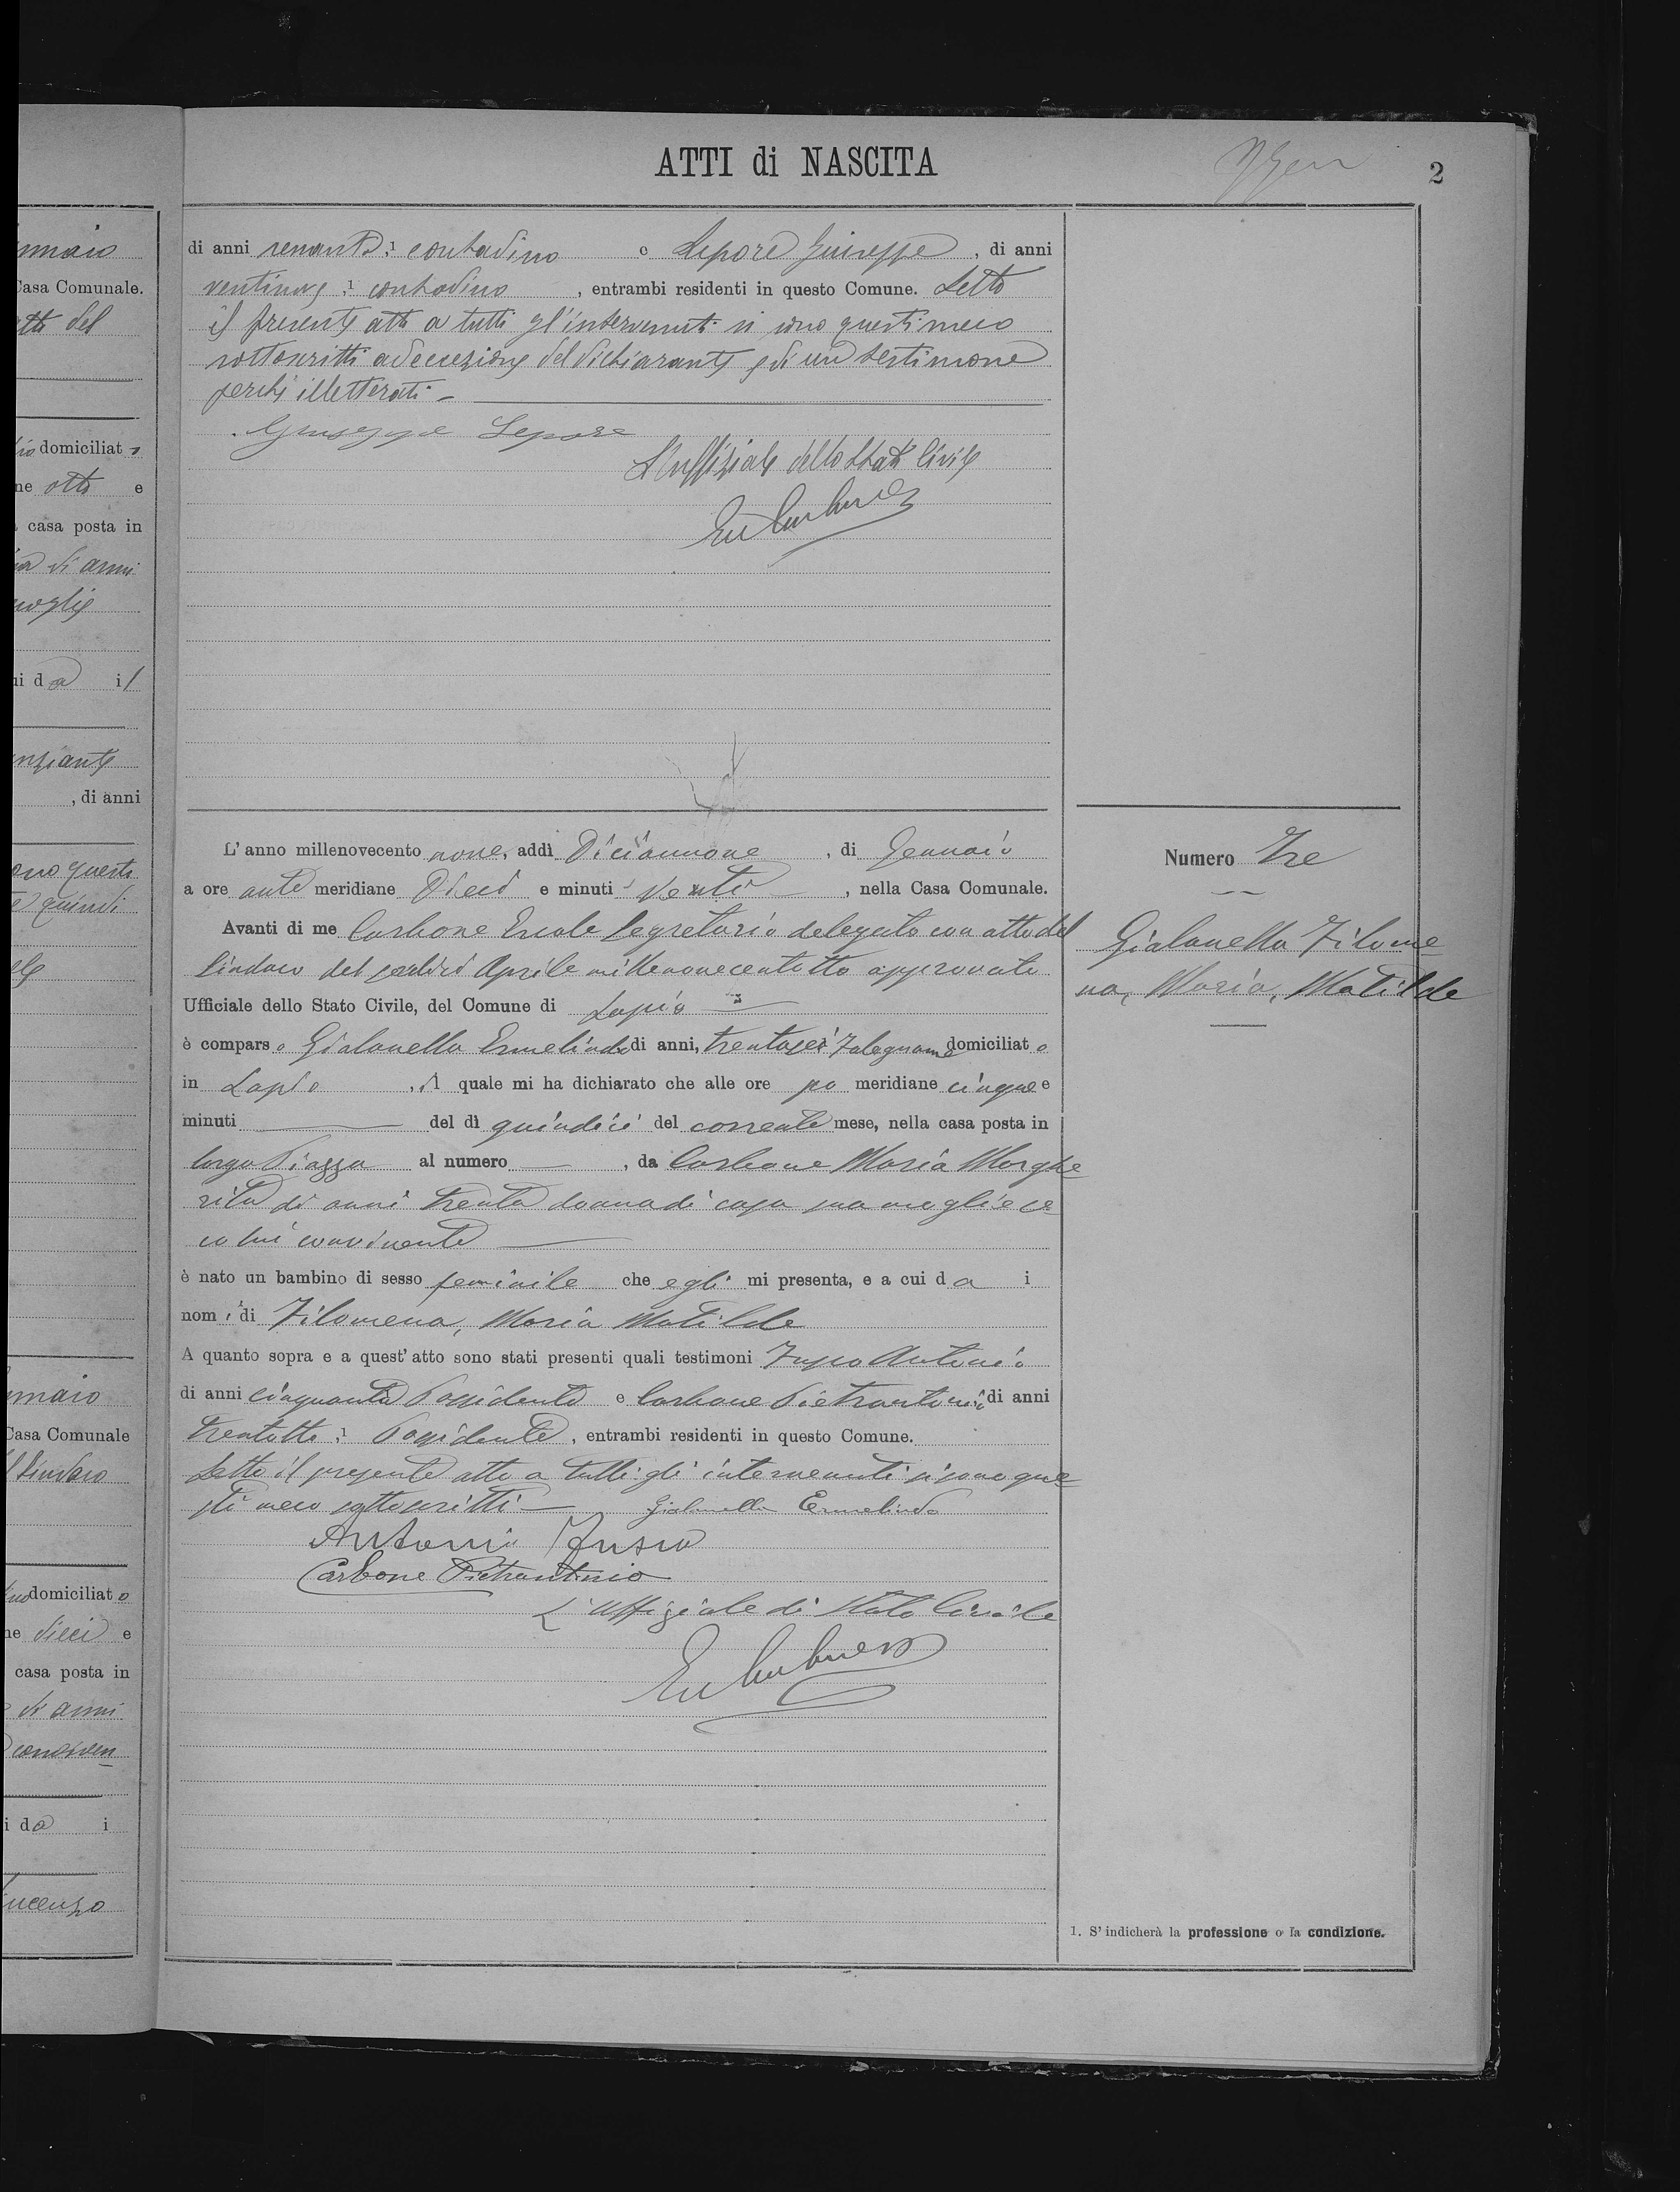 ATTI di NASCITA
2
nnaio
Casa Comunale.
tto del
domiciliato
ne otto e
casa posta in
di anni
moglie
ui da il
, di anni
ono questi
e quindi
nnaio
Casa Comunale
l Sindaco
domiciliato
ne dieci e
casa posta in
di anni
conviven
i da i
incenzo
di anni sessanta ¹ contadino e Lepore Giuseppe, di anni
ventinove ¹ contadino, entrambi residenti in questo Comune. Letto
il presente atto a tutti gl'intervenuti si sono questi meco
sottoscritti ad eccezione del dichiarante e di un testimone
perché illetterati -
Giuseppe Lepore
L'Uffiziale dello Stato Civile
L'anno millenovecento nove, addì Diciannove, di Gennaio
a ore ante meridiane Dieci e minuti venti, nella Casa Comunale.
Avanti di me Carbone Ercole Segretario delegato con atto del
Sindaco del Aprile millenovecentotto approvato
Ufficiale dello Stato Civile, del Comune di Lapio
è comparso Gialanella Ermelindo di anni, trentasei Falegname domiciliato
in Lapio, il quale mi ha dichiarato che alle ore po meridiane cinque e
minuti — del dì quindici del corrente mese, nella casa posta in
largo Piazza al numero —, da Carbone Maria Marghe
rita di anni trenta donna di casa sua moglie se
co lui convivente
è nato un bambino di sesso feminile che egli mi presenta, e a cui da i
nomi di Filomena, Maria Matilde
A quanto sopra e a quest'atto sono stati presenti quali testimoni Fusco Antonio
di anni cinquanta Possidente e Carbone Pietrantonio di anni
trentotto ¹ Possidente, entrambi residenti in questo Comune.
Letto il presente atto a tutti gli intervenuti si sono que
sti meco sottoscritti — Gialanella Ermelindo
Antonio Fusco
Carbone Pietrantonio
L'Uffiziale di Stato Civile
Numero Tre
Gialanella Filome
na, Maria, Matilde
1. S'indicherà la professione o la condizione.